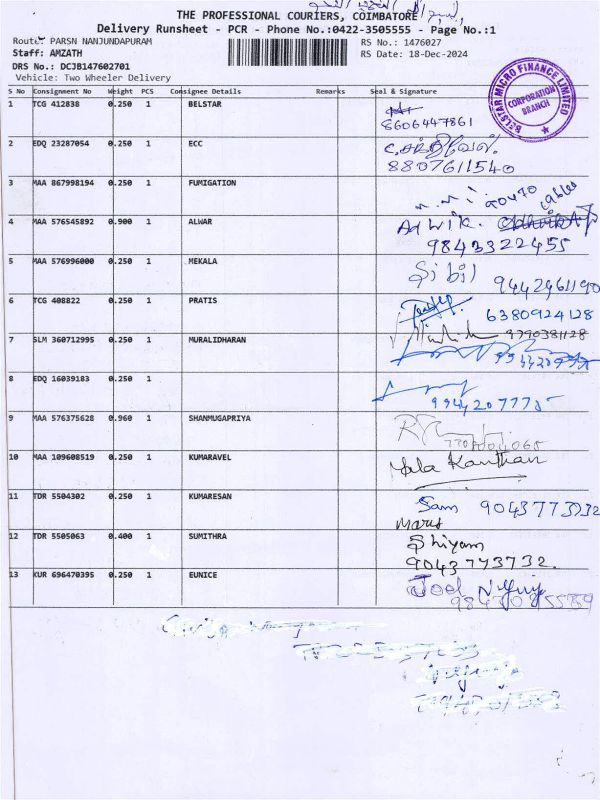 THE PROFESSIONAL COURIERS, COIMBATORE
Delivery Runsheet - PCR - Phone No.:0422-3505555 - Page No.:1
Route: PARSN NANJUNDAPURAM
RS No.: 1476027
Staff: AMZATH
RS Date: 18-Dec-2024
DRS No.: DCJB147602701
Vehicle: Two Wheeler Delivery
BELSTAR MICRO FINANCE LIMITED
CORPORATION BRANCH
S No Consignment No Weight PCS Consignee Details Remarks Seal & Signature
1 TCG 412838 0.250 1 BELSTAR
8606447861
2 EDQ 23287054 0.250 1 ECC
8807611540
3 MAA 867998194 0.250 1 FUMIGATION
4 MAA 576545892 0.900 1 ALWAR
Adwik.
9843322455
5 MAA 576996000 0.250 1 MEKALA
Sibil 9442961190
6 TCG 408822 0.250 1 PRATIS
6380924128
7 SLM 360712995 0.250 1 MURALIDHARAN
9790381128
8 EDQ 16039183 0.250 1
9 MAA 576375628 0.960 1 SHANMUGAPRIYA
10 MAA 109608519 0.250 1 KUMARAVEL
Kanthan
11 TDR 5504302 0.250 1 KUMARESAN
Sam 9043773732
12 TDR 5505063 0.400 1 SUMITHRA
Shiyam
9043773732.
13 KUR 696470395 0.250 1 EUNICE
Joel